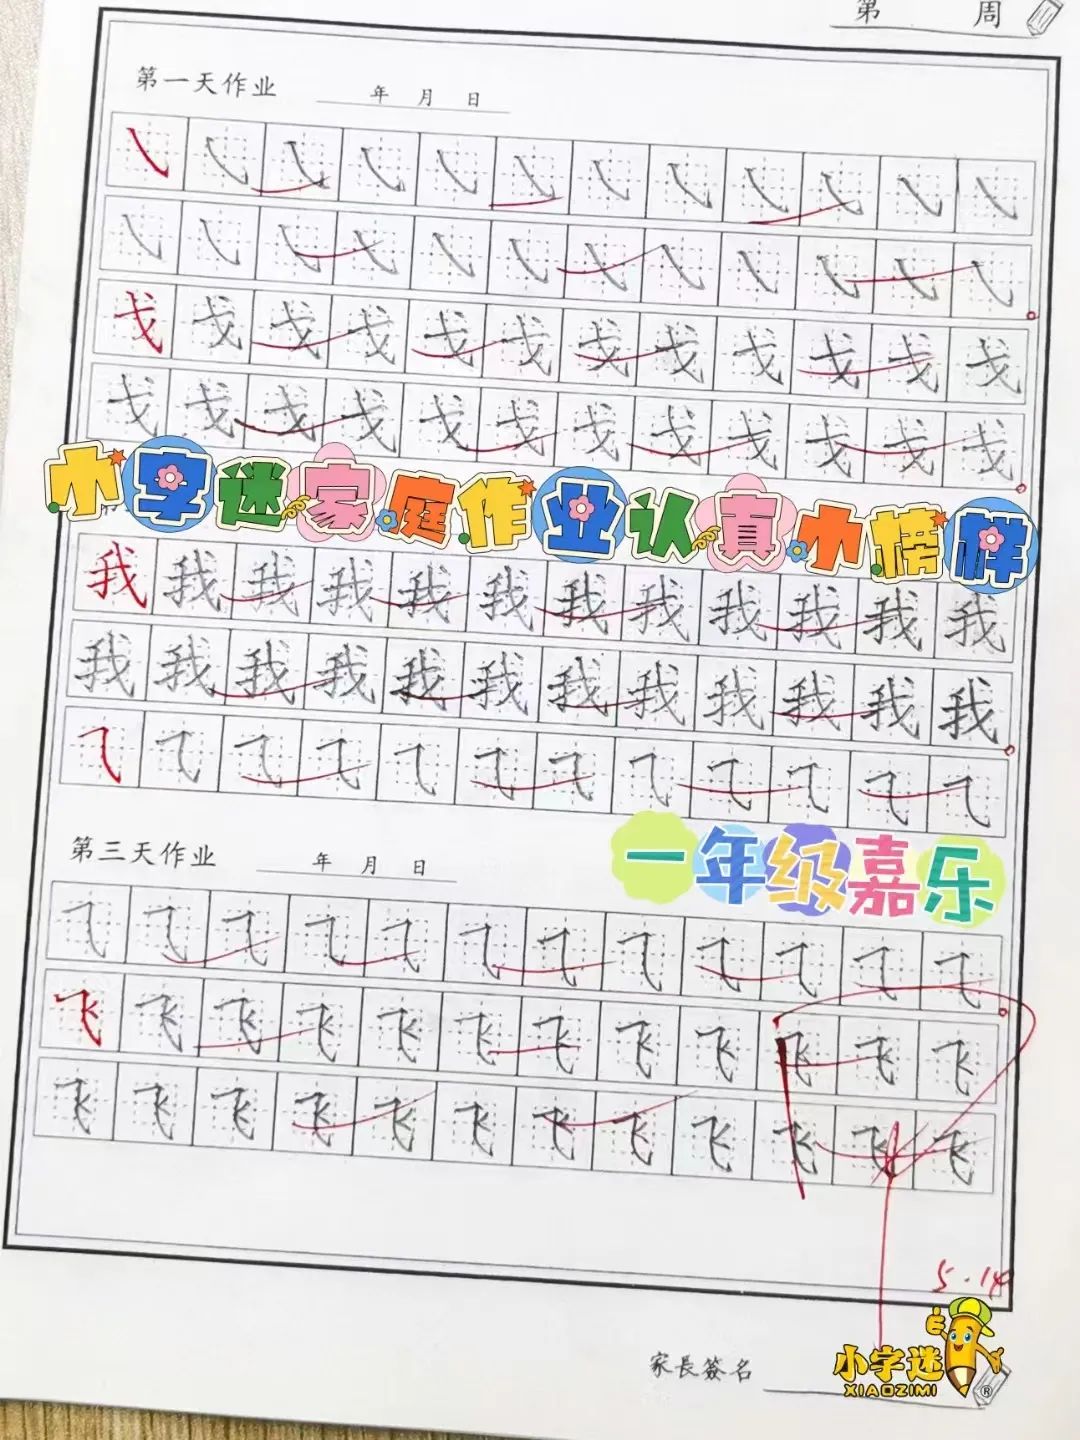 第 周
第一天作业 年 月 日
㇂ ㇂ ㇂ ㇂ ㇂ ㇂ ㇂ ㇂ ㇂ ㇂ ㇂ ㇂
㇂ ㇂ ㇂ ㇂ ㇂ ㇂ ㇂ ㇂ ㇂ ㇂ ㇂ ㇂
戈 戈 戈 戈 戈 戈 戈 戈 戈 戈 戈 戈
戈 戈 戈 戈 戈 戈 戈 戈 戈 戈 戈 戈
小字迷家庭作业认真小榜样
我 我 我 我 我 我 我 我 我 我 我 我
我 我 我 我 我 我 我 我 我 我 我 我
⺄ ⺄ ⺄ ⺄ ⺄ ⺄ ⺄ ⺄ ⺄ ⺄ ⺄ ⺄
一年级嘉乐
第三天作业 年 月 日
⺄ ⺄ ⺄ ⺄ ⺄ ⺄ ⺄ ⺄ ⺄ ⺄ ⺄ ⺄
飞 飞 飞 飞 飞 飞 飞 飞 飞 飞 飞 飞
飞 飞 飞 飞 飞 飞 飞 飞 飞 飞 飞 飞
5.14
家長签名
小字迷
XIAOZIMI ®